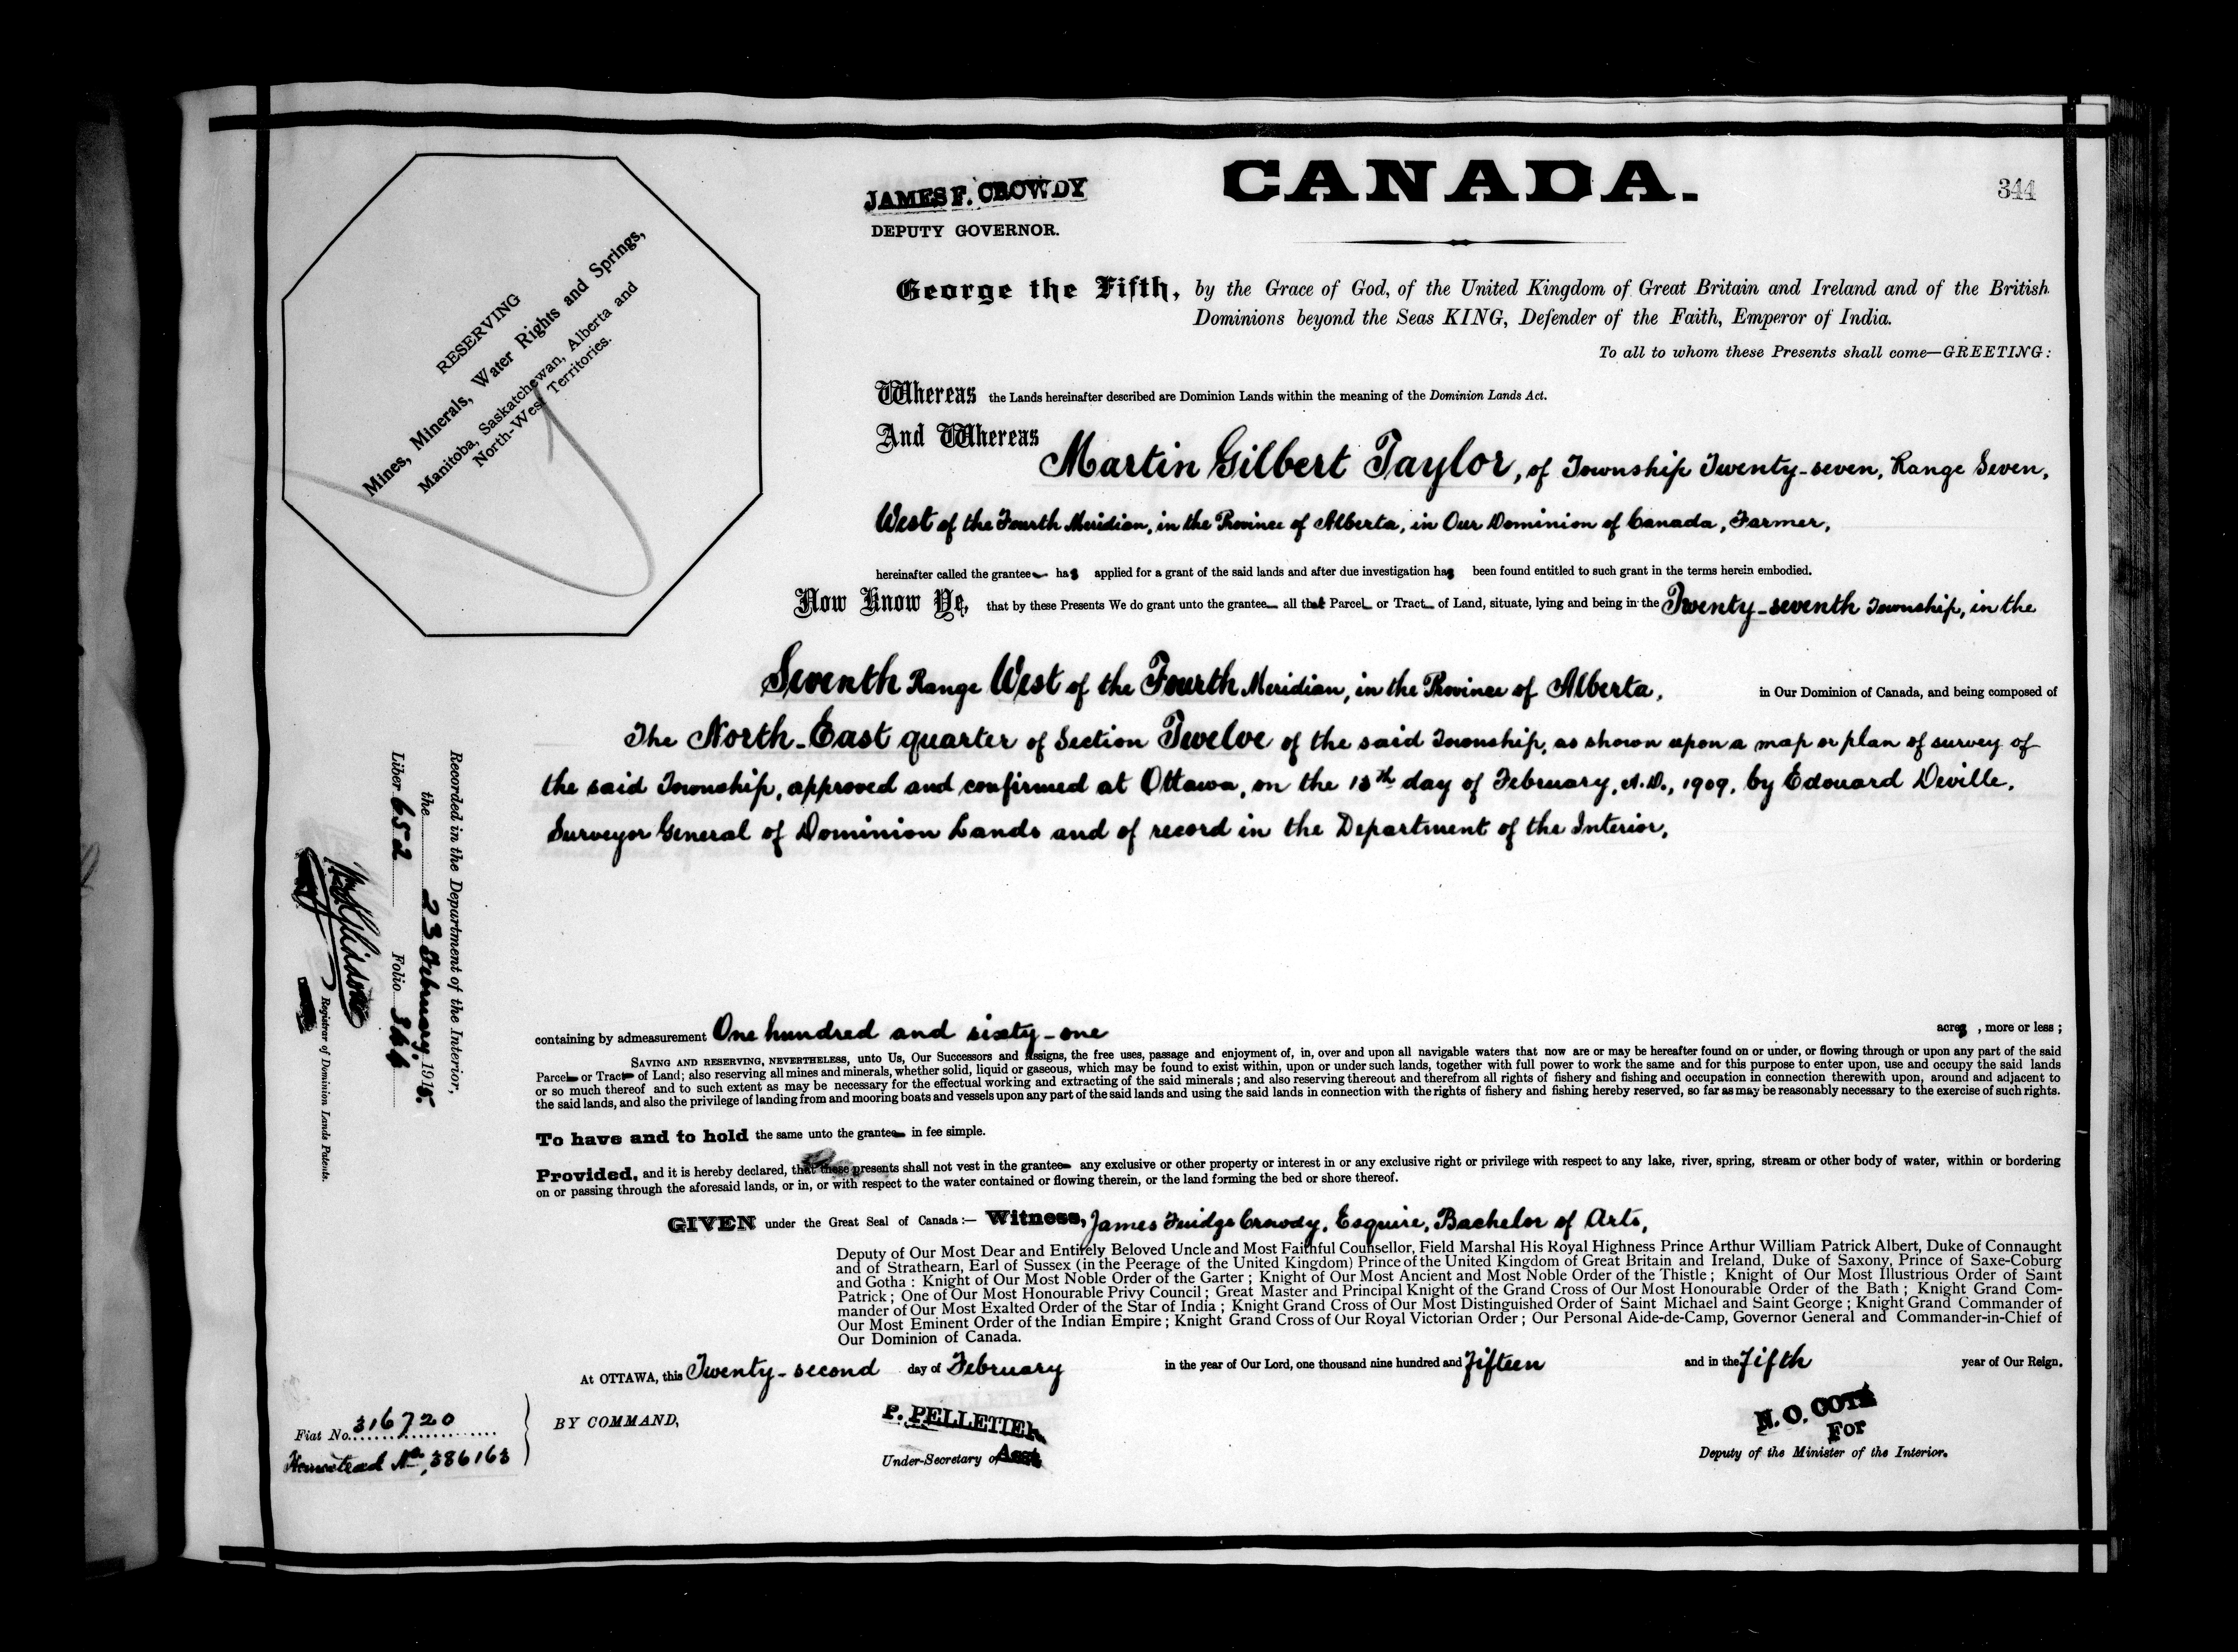 344
JAMES F. CROWDY
DEPUTY GOVERNOR.
CANADA.
RESERVING
Mines, Minerals, Water Rights and Springs,
Manitoba, Saskatchewan, Alberta and
North-West Territories.
George the Fifth, by the Grace of God, of the United Kingdom of Great Britain and Ireland and of the British
Dominions beyond the Seas KING, Defender of the Faith, Emperor of India.
To all to whom these Presents shall come—GREETING:
Whereas the Lands hereinafter described are Dominion Lands within the meaning of the Dominion Lands Act.
And Whereas Martin Gilbert Taylor, of Township Twenty-seven, Range Seven,
West of the Fourth Meridian, in the Province of Alberta, in Our Dominion of Canada, Farmer,
hereinafter called the grantee has applied for a grant of the said lands and after due investigation has been found entitled to such grant in the terms herein embodied.
Now Know Ye, that by these Presents We do grant unto the grantee all that Parcel or Tract of Land, situate, lying and being in the Twenty-seventh Township, in the
Seventh Range West of the Fourth Meridian, in the Province of Alberta, in Our Dominion of Canada, and being composed of
The North-East quarter of Section Twelve of the said Township, as shown upon a map or plan of survey of
the said Township, approved and confirmed at Ottawa, on the 13th day of February, A.D., 1909, by Edouard Deville,
Surveyor General of Dominion Lands and of record in the Department of the Interior,
containing by admeasurement One hundred and sixty-one acres, more or less;
SAVING AND RESERVING, NEVERTHELESS, unto Us, Our Successors and Assigns, the free uses, passage and enjoyment of, in, over and upon all navigable waters that now are or may be hereafter found on or under, or flowing through or upon any part of the said
Parcel or Tract of Land; also reserving all mines and minerals, whether solid, liquid or gaseous, which may be found to exist within, upon or under such lands, together with full power to work the same and for this purpose to enter upon, use and occupy the said lands
or so much thereof and to such extent as may be necessary for the effectual working and extracting of the said minerals; and also reserving thereout and therefrom all rights of fishery and fishing and occupation in connection therewith upon, around and adjacent to
the said lands, and also the privilege of landing from and mooring boats and vessels upon any part of the said lands and using the said lands in connection with the rights of fishery and fishing hereby reserved, so far as may be reasonably necessary to the exercise of such rights.
To have and to hold the same unto the grantee in fee simple.
Provided, and it is hereby declared, that these presents shall not vest in the grantee any exclusive or other property or interest in or any exclusive right or privilege with respect to any lake, river, spring, stream or other body of water, within or bordering
on or passing through the aforesaid lands, or in, or with respect to the water contained or flowing therein, or the land forming the bed or shore thereof.
GIVEN under the Great Seal of Canada:— Witness, James Fuidge Crowdy, Esquire, Bachelor of Arts,
Deputy of Our Most Dear and Entirely Beloved Uncle and Most Faithful Counsellor, Field Marshal His Royal Highness Prince Arthur William Patrick Albert, Duke of Connaught
and of Strathearn, Earl of Sussex (in the Peerage of the United Kingdom) Prince of the United Kingdom of Great Britain and Ireland, Duke of Saxony, Prince of Saxe-Coburg
and Gotha: Knight of Our Most Noble Order of the Garter; Knight of Our Most Ancient and Most Noble Order of the Thistle; Knight of Our Most Illustrious Order of Saint
Patrick; One of Our Most Honourable Privy Council; Great Master and Principal Knight of the Grand Cross of Our Most Honourable Order of the Bath; Knight Grand Com-
mander of Our Most Exalted Order of the Star of India; Knight Grand Cross of Our Most Distinguished Order of Saint Michael and Saint George; Knight Grand Commander of
Our Most Eminent Order of the Indian Empire; Knight Grand Cross of Our Royal Victorian Order; Our Personal Aide-de-Camp, Governor General and Commander-in-Chief of
Our Dominion of Canada.
At OTTAWA, this Twenty-second day of February in the year of Our Lord, one thousand nine hundred and Fifteen and in the Fifth year of Our Reign.
BY COMMAND,
P. PELLETIER
Asst
Under-Secretary of
N. O. COTE
For
Deputy of the Minister of the Interior.
Fiat No. 316720
Homestead No. 386163
Recorded in the Department of the Interior,
the 23 February 1915.
Liber 652 Folio 344
Registrar of Dominion Lands Patents.